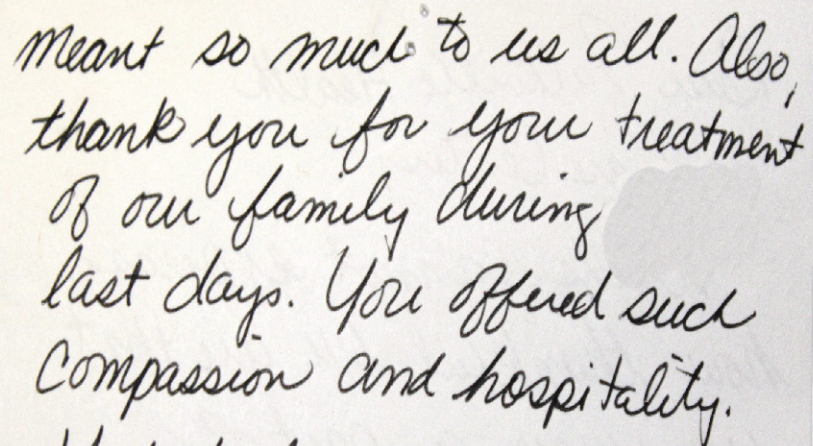 meant so much to us all. Also,
thank you for your treatment
of our family during
last days. You offered such
compassion and hospitality.